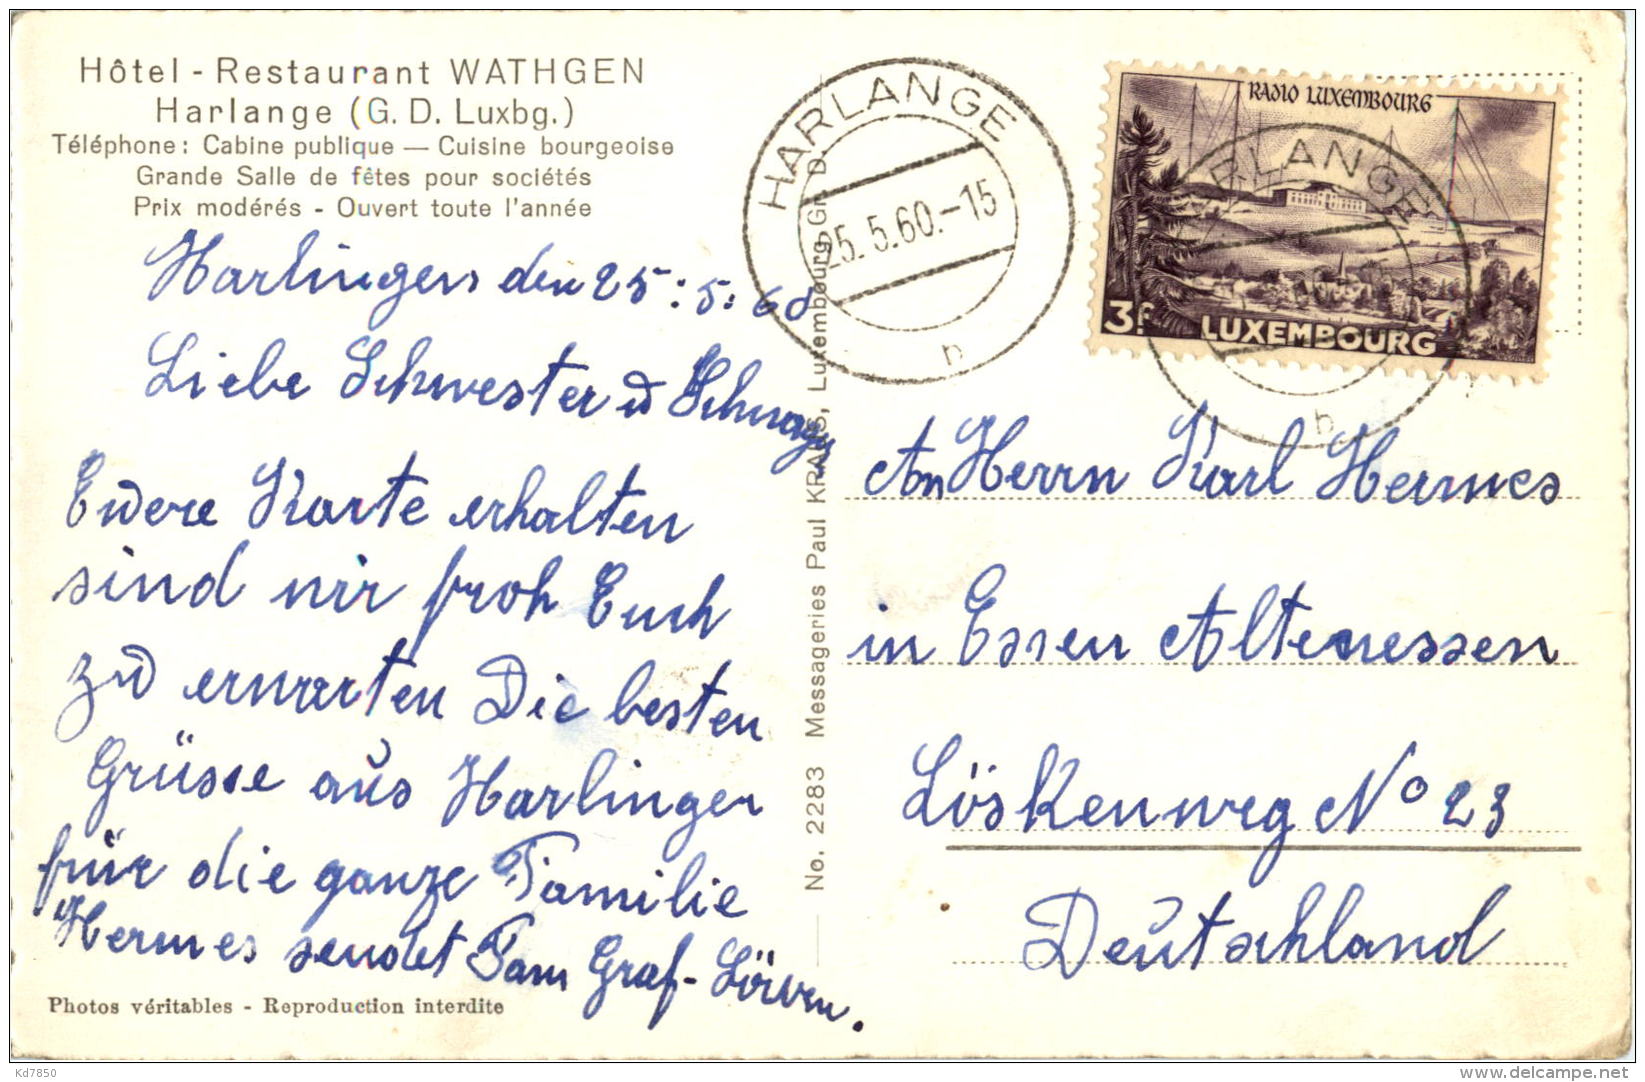 Hôtel - Restaurant WATHGEN
Harlange (G. D. Luxbg.)
Téléphone: Cabine publique — Cuisine bourgeoise
Grande Salle de fêtes pour sociétés
Prix modérés - Ouvert toute l'année
Harlingen den 25.5.60
Liebe Schwester u Schwager
Euere Karte erhalten
sind wir froh Euch
zu erwarten Die besten
Grüsse aus Harlingen
für die ganze Familie
Hermes sendet Fam Graf-
Photos véritables - Reproduction interdite
No. 2283 Messageries Paul KRAUS, Luxembourg, Gr. D.
HARLANGE
25.5.60.-15
h
RADIO LUXEMBOURG
3F
LUXEMBOURG
HARLANGE
h
An Herrn Karl Hermes
in Essen Altenessen
Löskenweg No 23
Deutschland
Kd7850
www.delcampe.net